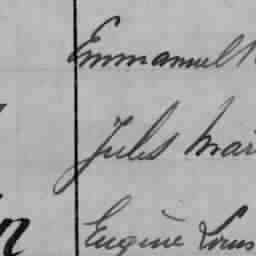 Emmanuel
Jules Mar
Eugène Louis